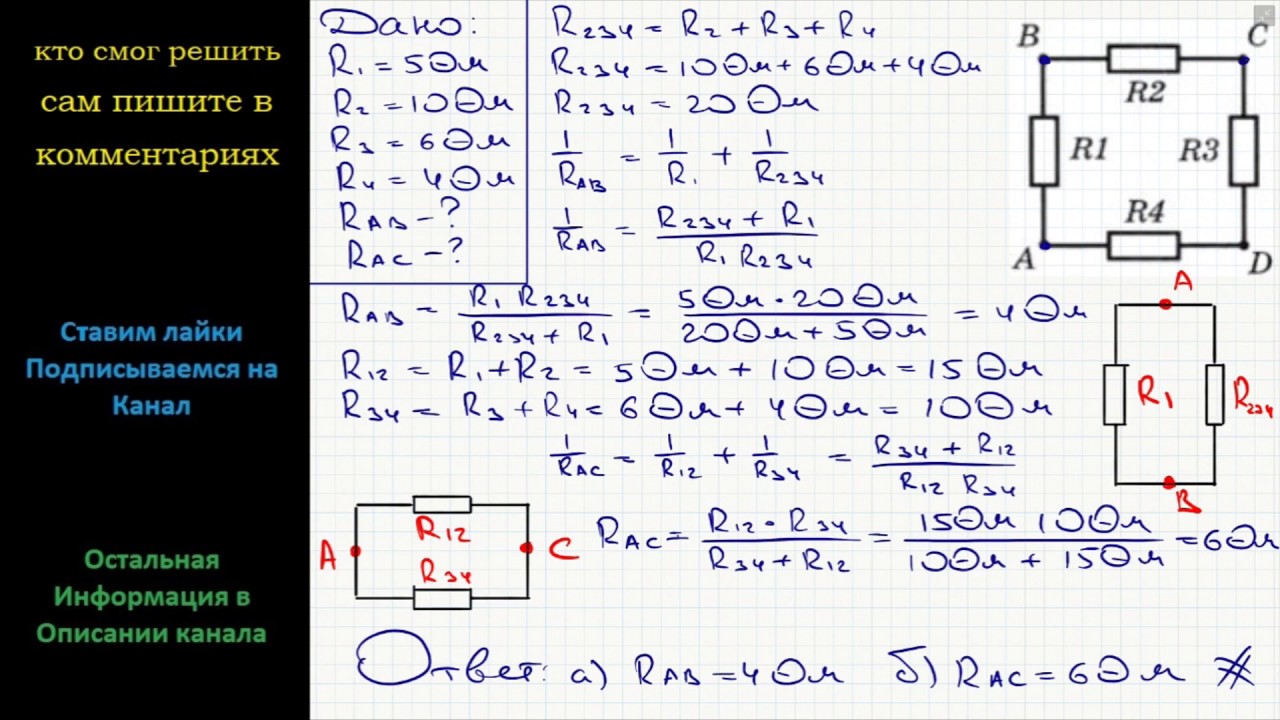 кто смог решить
сам пишите в
комментариях
Ставим лайки
Подписываемся на
Канал
Остальная
Информация в
Описании канала
Дано:
R₁ = 5 Ом
R₂ = 10 Ом
R₃ = 6 Ом
R₄ = 4 Ом
R_AB – ?
R_AC – ?
R₂₃₄ = R₂ + R₃ + R₄
R₂₃₄ = 10 Ом + 6 Ом + 4 Ом
R₂₃₄ = 20 Ом
1/R_AB = 1/R₁ + 1/R₂₃₄
1/R_AB = (R₂₃₄ + R₁)/(R₁ R₂₃₄)
B C
R2
R1 R3
R4
A D
R_AB = (R₁ R₂₃₄)/(R₂₃₄ + R₁) = (5 Ом · 20 Ом)/(20 Ом + 5 Ом) = 4 Ом
R₁₂ = R₁ + R₂ = 5 Ом + 10 Ом = 15 Ом
R₃₄ = R₃ + R₄ = 6 Ом + 4 Ом = 10 Ом
1/R_AC = 1/R₁₂ + 1/R₃₄ = (R₃₄ + R₁₂)/(R₁₂ R₃₄)
A
R₁ R₂₃₄
B
R₁₂
A C
R₃₄
R_AC = (R₁₂ · R₃₄)/(R₃₄ + R₁₂) = (15 Ом 10 Ом)/(10 Ом + 15 Ом) = 6 Ом
Ответ: а) R_AB = 4 Ом б) R_AC = 6 Ом